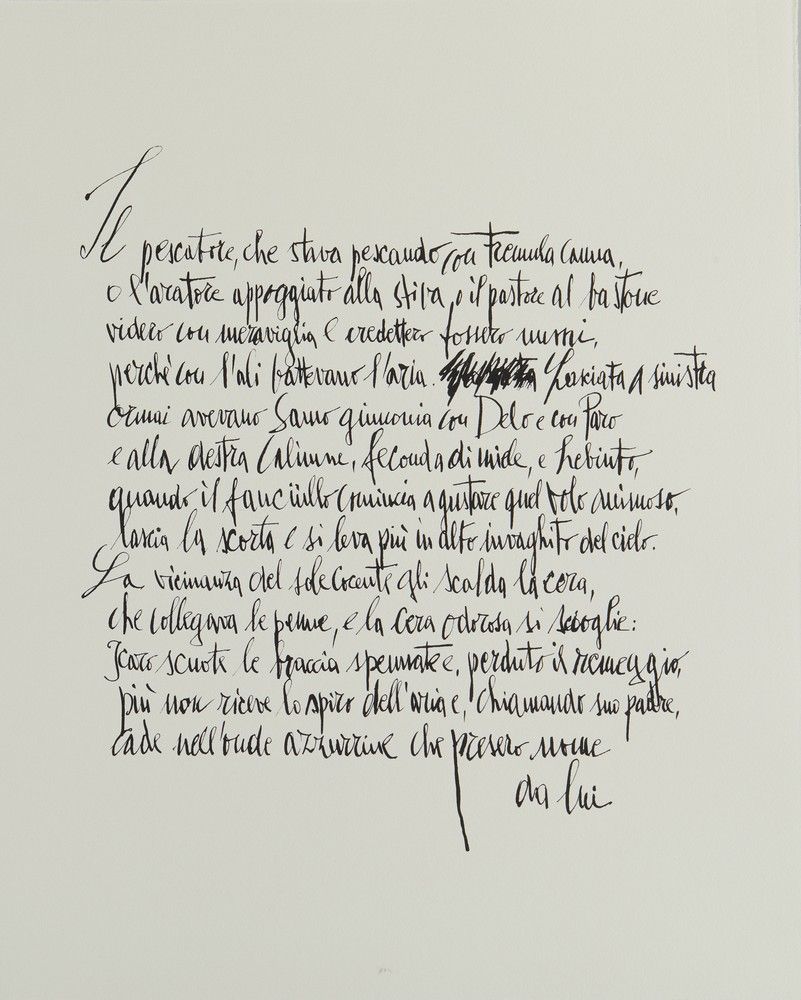 Il pescatore, che stava pescando con tremula canna,
o l'aratore appoggiato alla stiva, o il pastore al bastone
videro con meraviglia e credettero fossero numi,
perchè con l'ali battevano l'aria. Lasciata a sinistra
ormai avevano Samo giunonia con Delo e con Paro
e alla destra Calimne, feconda di miele, e Lebinto,
quando il fanciullo comincia a gustare quel volo animoso,
lascia la scorta e si leva più in alto invaghito del cielo.
La vicinanza del sole cocente gli scalda la cera,
che collegava le penne, e la cera odorosa si scioglie:
Icaro scuote le braccia spennate e, perduto il remeggio,
più non riceve lo spiro dell'aria e, chiamando suo padre,
cade nell'onde azzurrine che presero nome
da lui